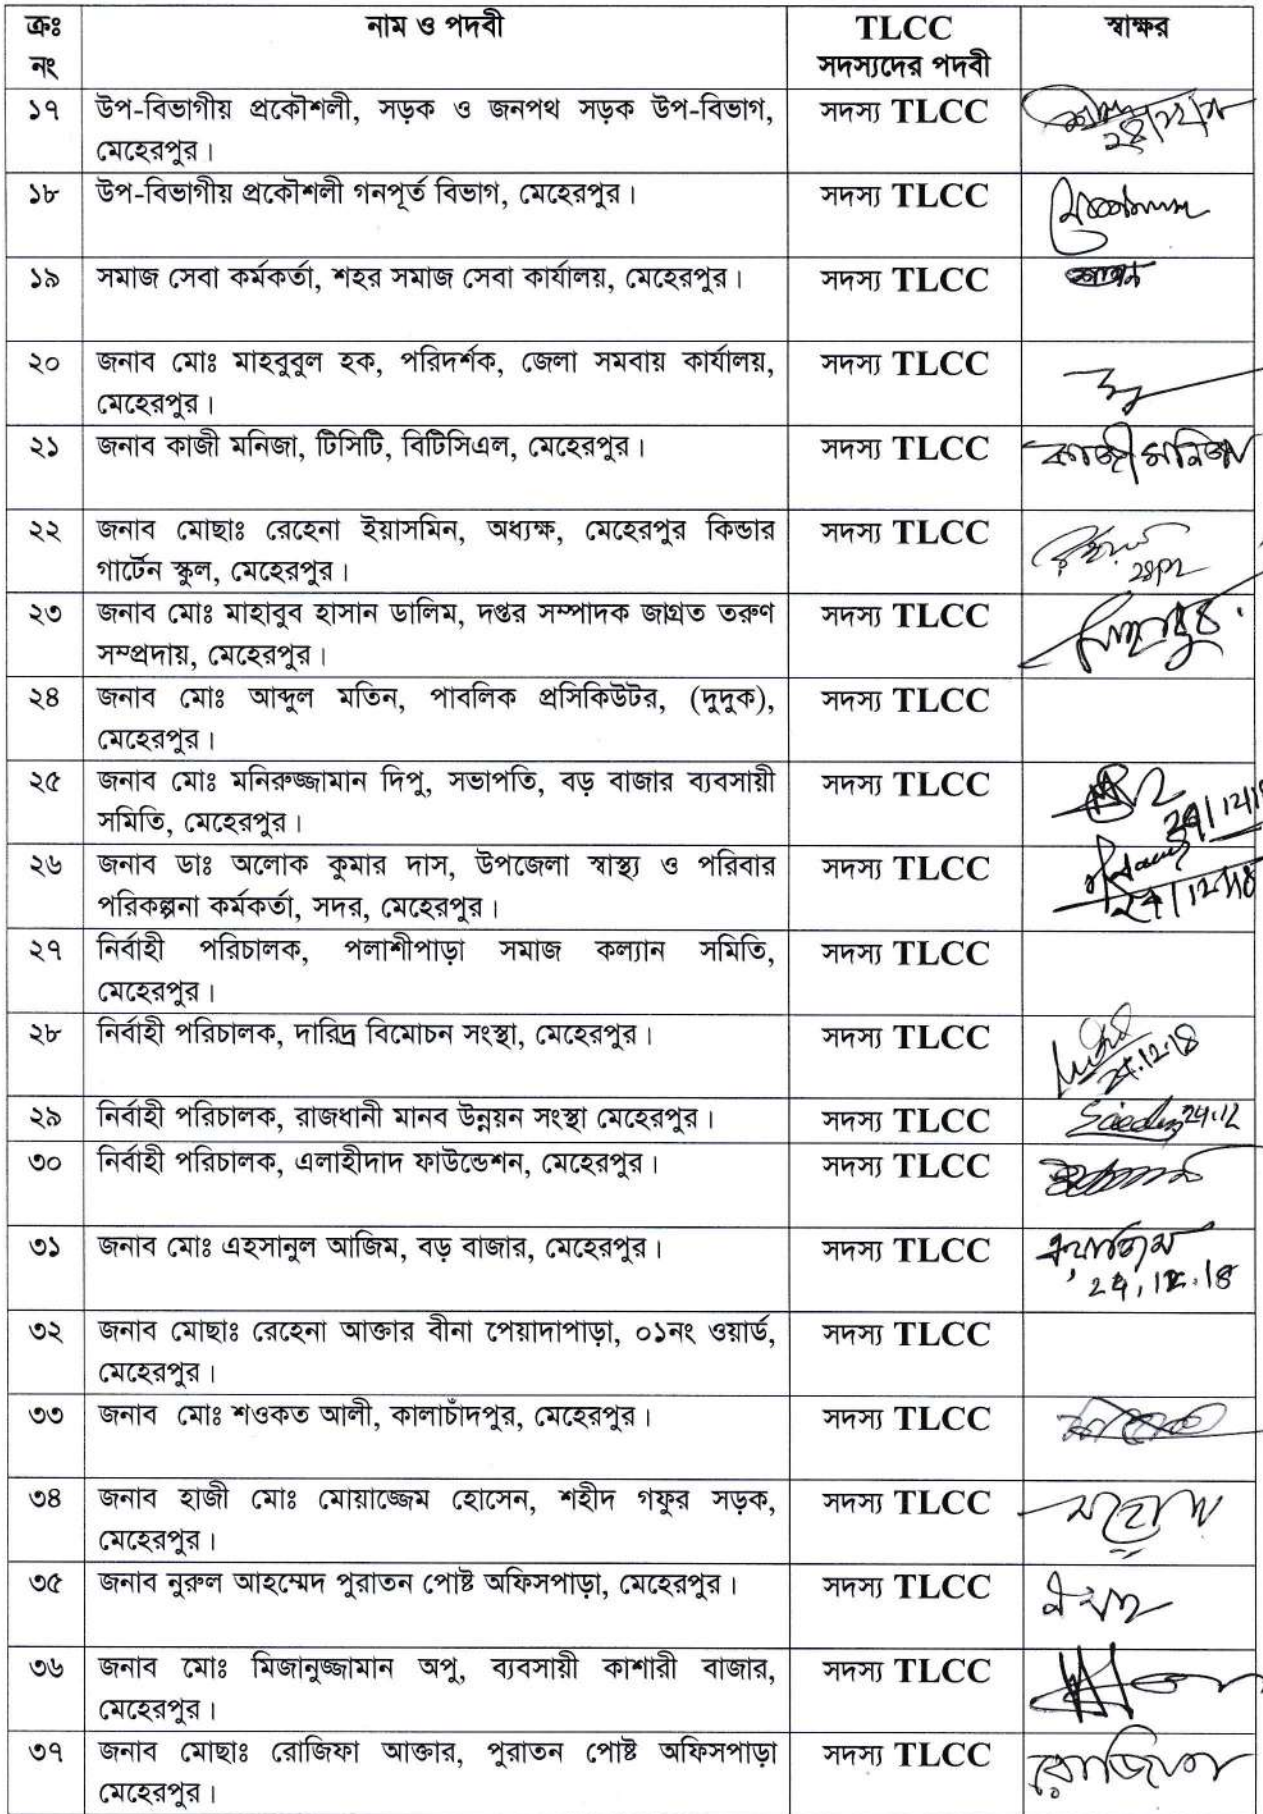 ক্রঃ নাম ও পদবী TLCC স্বাক্ষর
নং সদস্যদের পদবী
১৭ উপ-বিভাগীয় প্রকৌশলী, সড়ক ও জনপথ সড়ক উপ-বিভাগ, সদস্য TLCC
মেহেরপুর।
১৮ উপ-বিভাগীয় প্রকৌশলী গনপূর্ত বিভাগ, মেহেরপুর। সদস্য TLCC
১৯ সমাজ সেবা কর্মকর্তা, শহর সমাজ সেবা কার্যালয়, মেহেরপুর। সদস্য TLCC
২০ জনাব মোঃ মাহবুবুল হক, পরিদর্শক, জেলা সমবায় কার্যালয়, সদস্য TLCC
মেহেরপুর।
২১ জনাব কাজী মনিজা, টিসিটি, বিটিসিএল, মেহেরপুর। সদস্য TLCC কাজী মনিজা
২২ জনাব মোছাঃ রেহেনা ইয়াসমিন, অধ্যক্ষ, মেহেরপুর কিন্ডার সদস্য TLCC
গার্টেন স্কুল, মেহেরপুর।
২৩ জনাব মোঃ মাহাবুব হাসান ডালিম, দপ্তর সম্পাদক জাগ্রত তরুণ সদস্য TLCC
সম্প্রদায়, মেহেরপুর।
২৪ জনাব মোঃ আব্দুল মতিন, পাবলিক প্রসিকিউটর, (দুদুক), সদস্য TLCC
মেহেরপুর।
২৫ জনাব মোঃ মনিরুজ্জামান দিপু, সভাপতি, বড় বাজার ব্যবসায়ী সদস্য TLCC
সমিতি, মেহেরপুর।
২৬ জনাব ডাঃ অলোক কুমার দাস, উপজেলা স্বাস্থ্য ও পরিবার সদস্য TLCC
পরিকল্পনা কর্মকর্তা, সদর, মেহেরপুর। 24/12/18
২৭ নির্বাহী পরিচালক, পলাশীপাড়া সমাজ কল্যান সমিতি, সদস্য TLCC
মেহেরপুর।
২৮ নির্বাহী পরিচালক, দারিদ্র বিমোচন সংস্থা, মেহেরপুর। সদস্য TLCC
24.12.18
২৯ নির্বাহী পরিচালক, রাজধানী মানব উন্নয়ন সংস্থা মেহেরপুর। সদস্য TLCC 24.12
৩০ নির্বাহী পরিচালক, এলাহীদাদ ফাউন্ডেশন, মেহেরপুর। সদস্য TLCC
৩১ জনাব মোঃ এহসানুল আজিম, বড় বাজার, মেহেরপুর। সদস্য TLCC
24.12.18
৩২ জনাব মোছাঃ রেহেনা আক্তার বীনা পেয়াদাপাড়া, ০১নং ওয়ার্ড, সদস্য TLCC
মেহেরপুর।
৩৩ জনাব মোঃ শওকত আলী, কালাচাঁদপুর, মেহেরপুর। সদস্য TLCC
৩৪ জনাব হাজী মোঃ মোয়াজ্জেম হোসেন, শহীদ গফুর সড়ক, সদস্য TLCC
মেহেরপুর।
৩৫ জনাব নুরুল আহম্মেদ পুরাতন পোষ্ট অফিসপাড়া, মেহেরপুর। সদস্য TLCC
৩৬ জনাব মোঃ মিজানুজ্জামান অপু, ব্যবসায়ী কাশারী বাজার, সদস্য TLCC
মেহেরপুর।
৩৭ জনাব মোছাঃ রোজিফা আক্তার, পুরাতন পোষ্ট অফিসপাড়া সদস্য TLCC রোজিফা
মেহেরপুর।